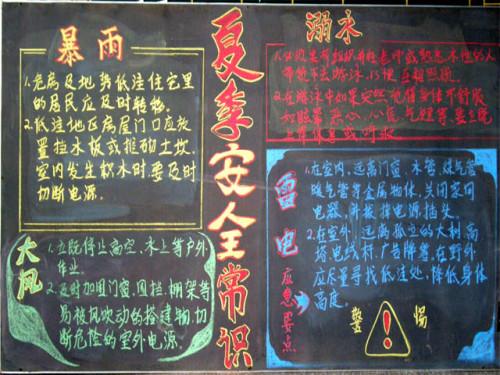 夏季安全常识
暴雨
1.危房及地势低洼住宅里
的居民应及时转物。
2.低洼地区房屋门口应放
置挡水板或堆砌土坎。
室内发生积水时,要及时
切断电源。
大风
1.立即停止高空、水上等户外
作业。
2.及时加固门窗、围挡、棚架等
易被风吹动的搭建物,切
断危险的室外电源。
溺水
2.在游泳中如果突然觉得身体不舒服
雷电
应急要点
1.在室内,远离门窗、水管、煤气管
暖气管等金属物体,关闭家用
电器,并拔掉电源插头。
2.在室外,远离孤立的大树高
塔、电线杆、广告牌等,在野外
应尽量寻找低洼处,降低身体
高度。
警惕
!